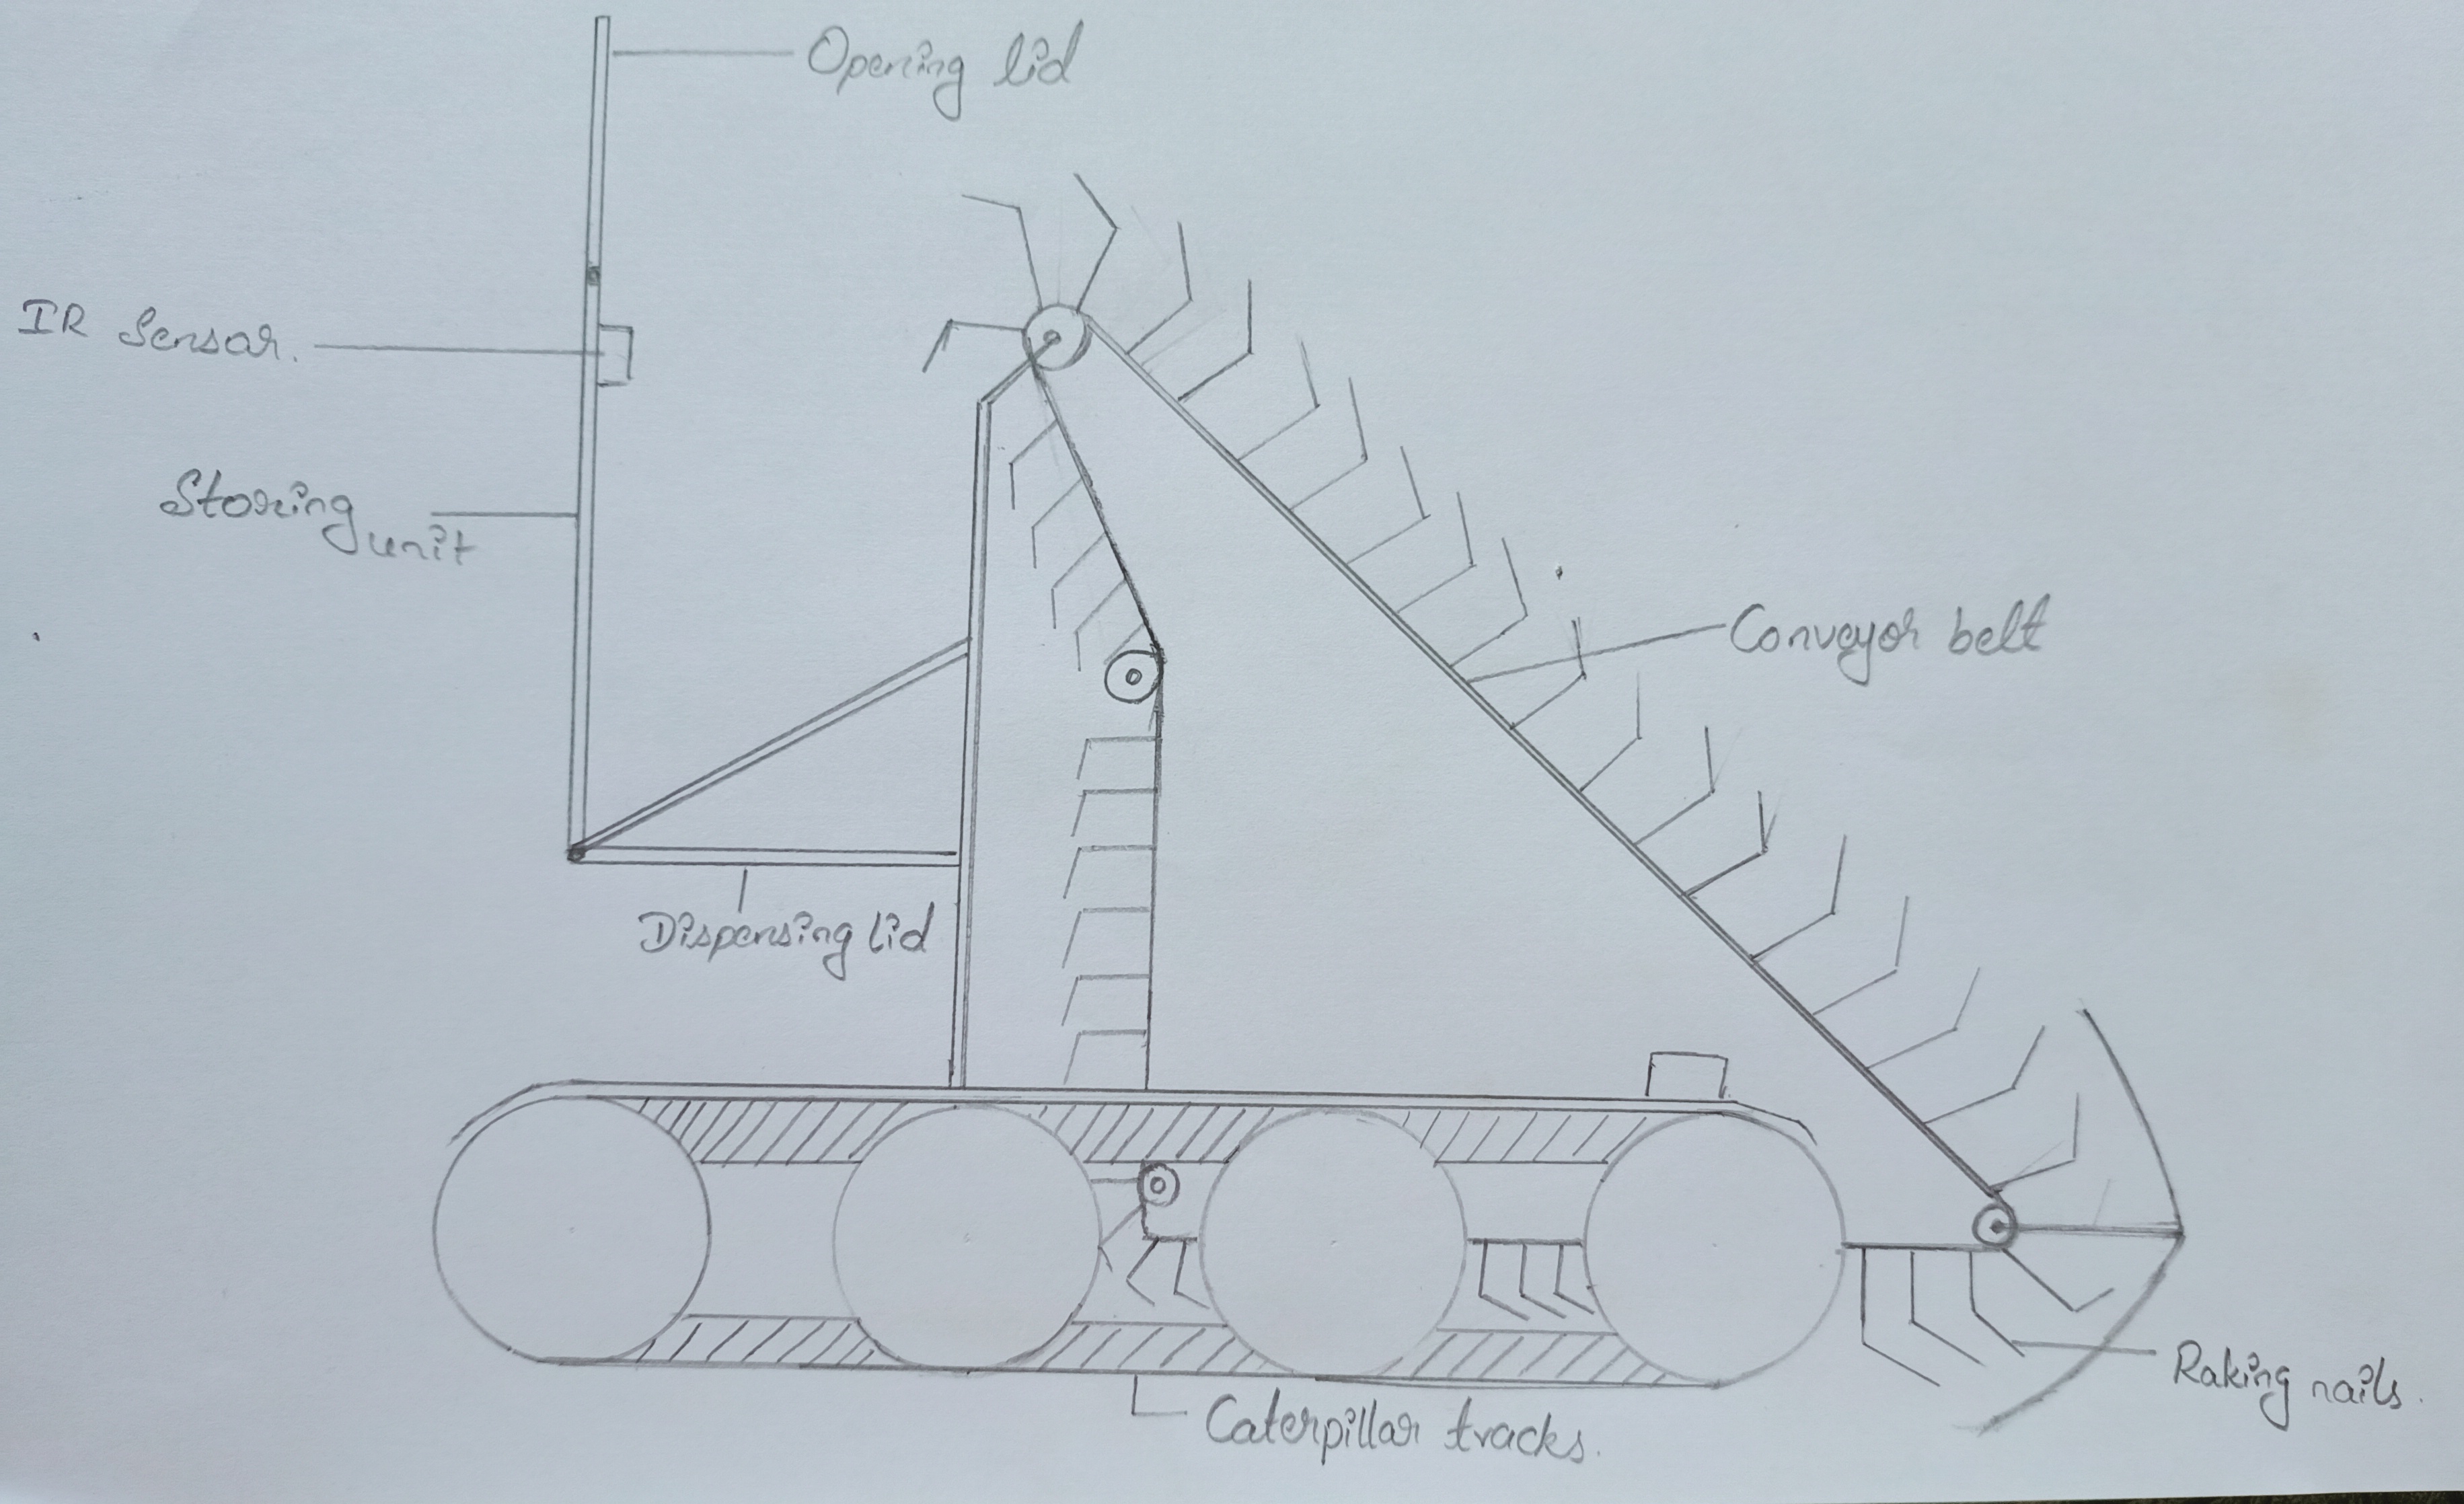 Opening lid
IR Sensar.
Storing
unit
Conveyor belt
Dispensing lid
Raking nails.
Caterpillar tracks.